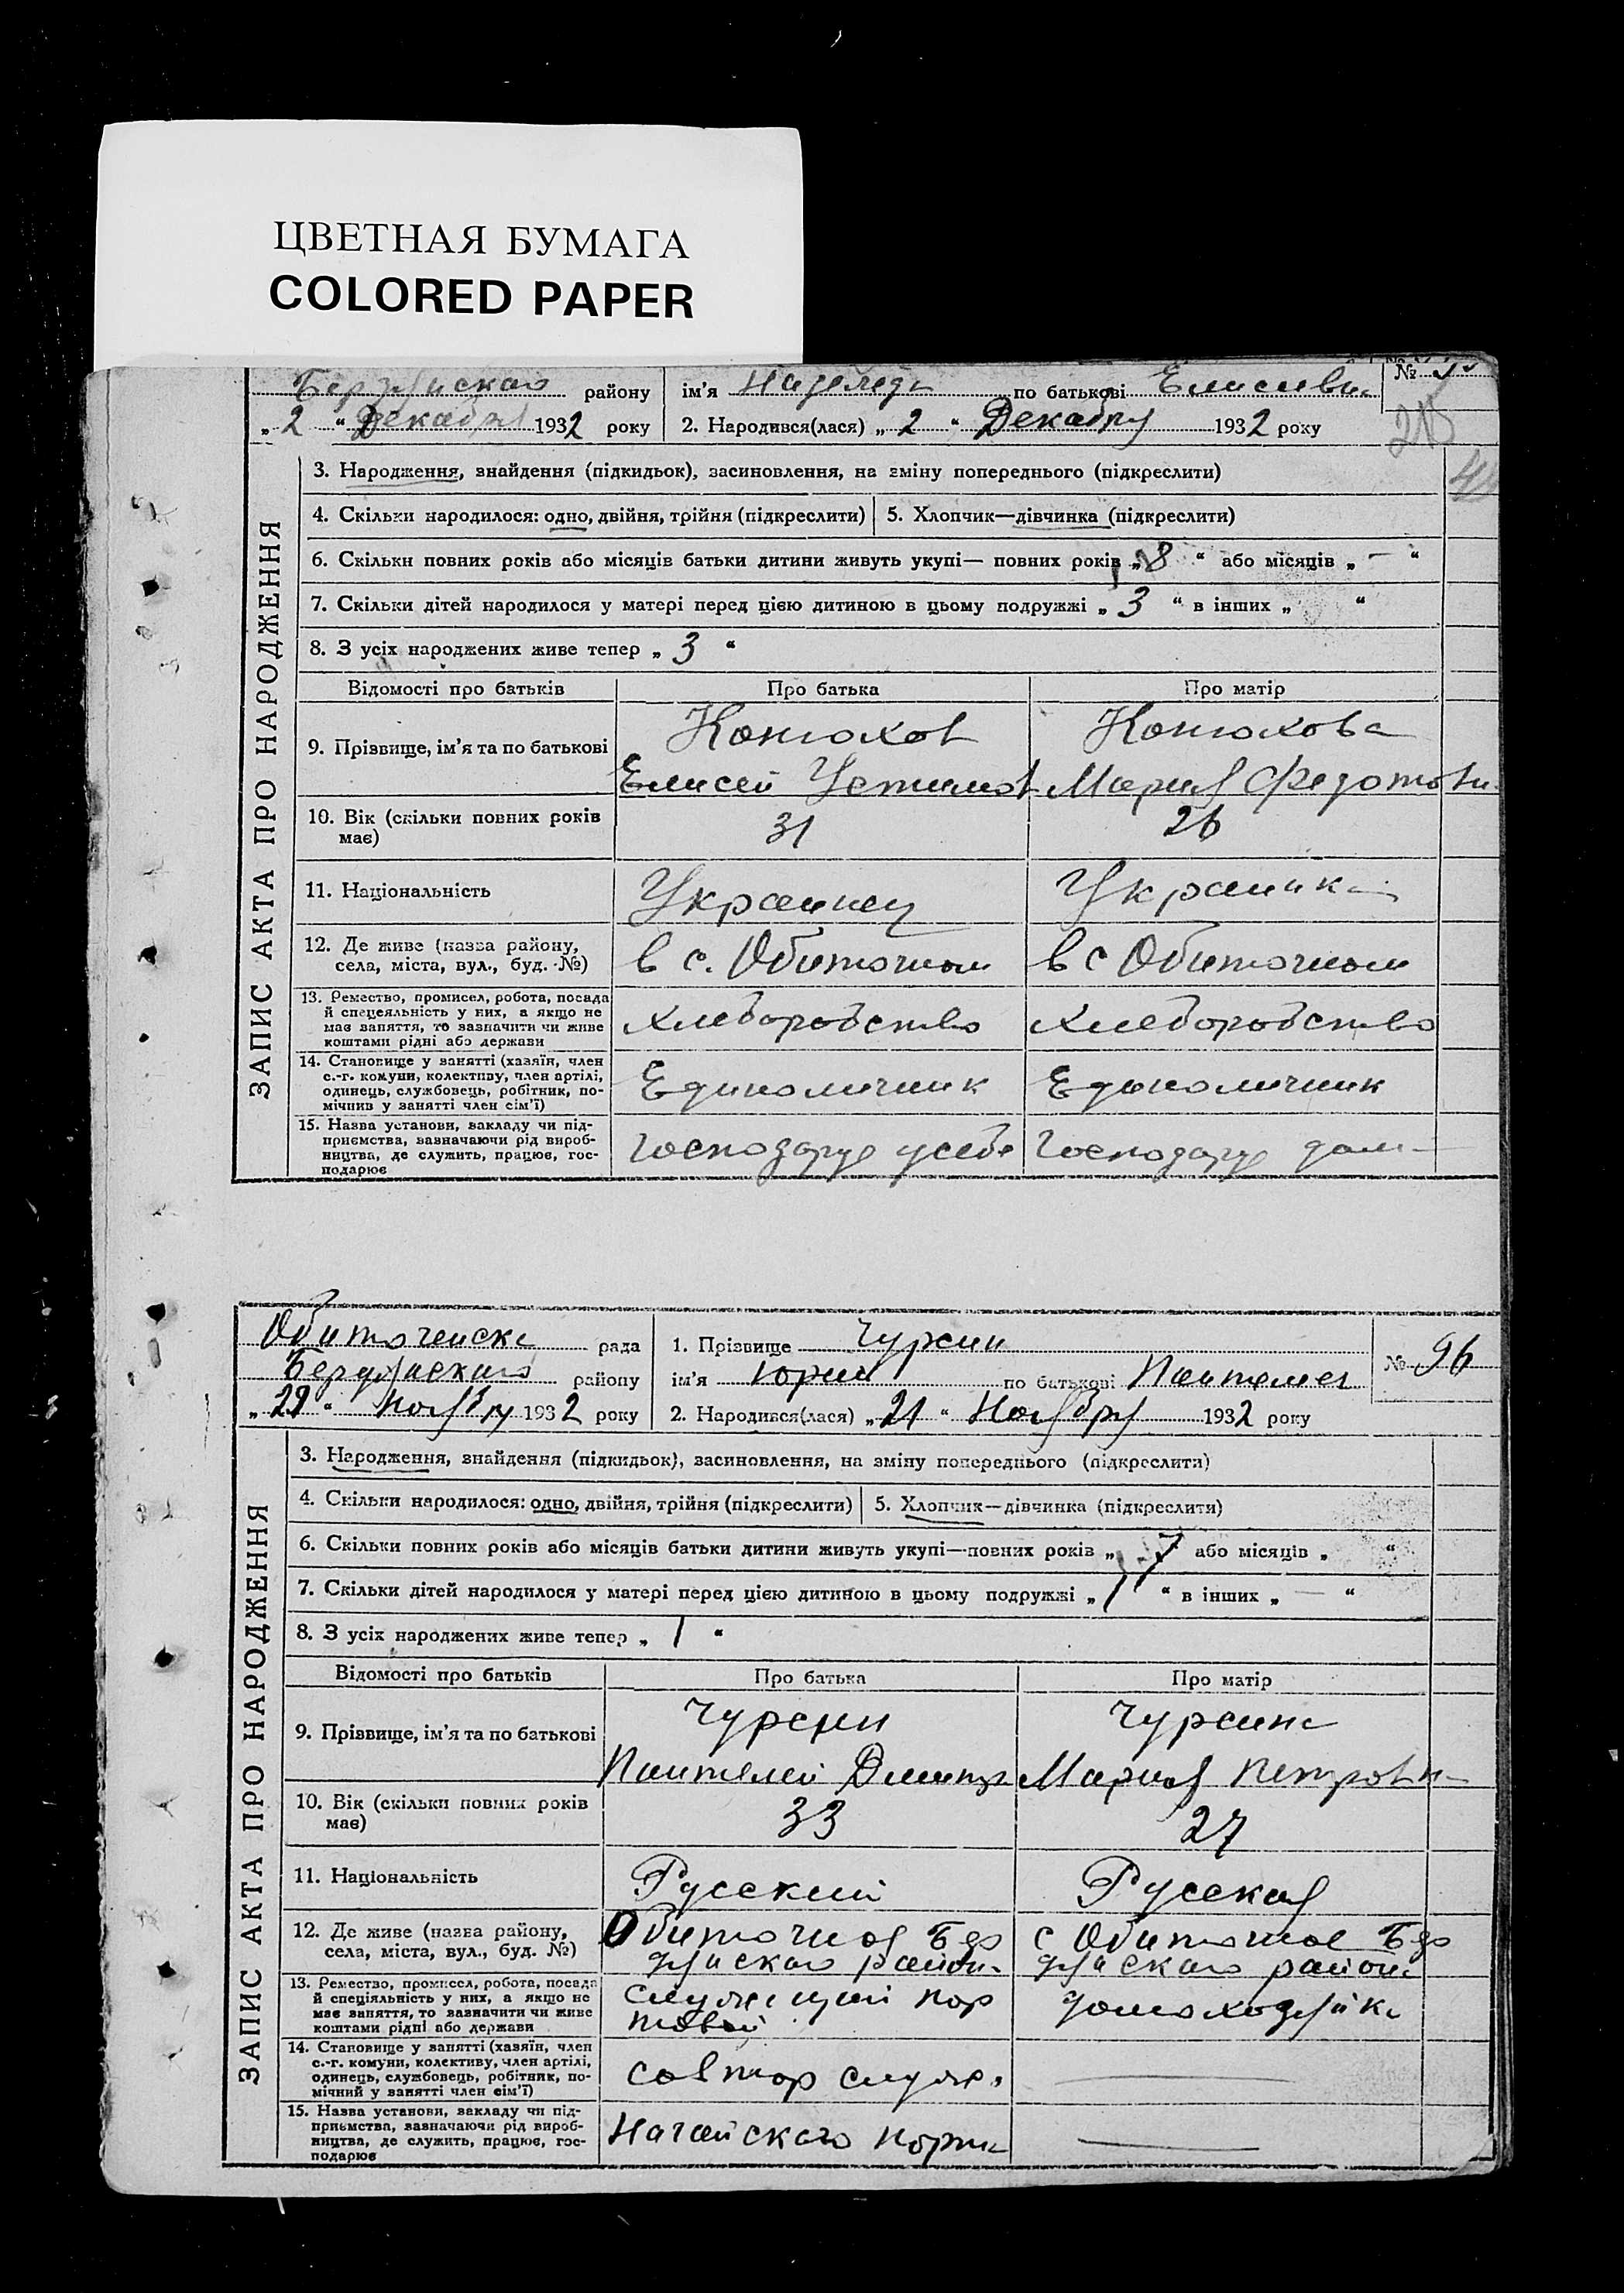 ЦВЕТНАЯ БУМАГА
COLORED PAPER
району ім'я Надежда по батькові Елисеевн. №
„ 2 “ Декабря 1932 року 2. Народився(лася) „ 2 “ Декабря 1932 року
3. Народження, знайдення (підкидьок), засиновлення, на зміну попереднього (підкреслити)
4. Скільки народилося: одно, двійня, трійня (підкреслити) 5. Хлопчик—дівчинка (підкреслити)
6. Скільки повних років або місяців батьки дитини живуть укупі— повних років „ 8 “ або місяців „ – “
7. Скільки дітей народилося у матері перед цією дитиною в цьому подружжі „ 3 “ в інших „ “
8. З усіх народжених живе тепер „ 3 “
ЗАПИС АКТА ПРО НАРОДЖЕННЯ
Відомості про батьків Про батька Про матір
9. Прізвище, ім'я та по батькові Конюхов Конюхова
Елисей Устимов Мария Федотовн.
10. Вік (скільки повних років має) 31 26
11. Національність Украинец Украинка
12. Де живе (назва району, села, міста, вул., буд. №) в с. Обиточном в с Обиточном
13. Ремество, промисел, робота, посада й спеціяльність у них, а якщо не має заняття, то зазначити чи живе коштами рідні або держави хлеборобство хлеборобство
14. Становище у занятті (хазяїн, член с.-г. комуни, колективу, член артілі, одинець, службовець, робітник, помічнив у занятті член сім'ї) Единоличник Единоличник
15. Назва установи, закладу чи підприємства, зазначаючи рід виробництва, де служить, працює, господарює Господарує усебе Господарує дома
рада 1. Прізвище Чурсин № 96
району ім'я Юрий по батькові Пантелеев
„ 29 “ Ноября 1932 року 2. Народився(лася) „ 21 “ Ноября 1932 року
3. Народження, знайдення (підкидьок), засиновлення, на зміну попереднього (підкреслити)
4. Скільки народилося: одно, двійня, трійня (підкреслити) 5. Хлопчик—дівчинка (підкреслити)
6. Скільки повних років або місяців батьки дитини живуть укупі—повних років „ 7 або місяців „ “
7. Скільки дітей народилося у матері перед цією дитиною в цьому подружжі „ 1 “ в інших „ — “
8. З усіх народжених живе тепер „ 1 “
ЗАПИС АКТА ПРО НАРОДЖЕННЯ
Відомості про батьків Про батька Про матір
9. Прізвище, ім'я та по батькові Чурсин Чурсина
Пантелей Дмитр Мария Петровн
10. Вік (скільки повних років має) 33 27
11. Національність Русский Русская
12. Де живе (назва району, села, міста, вул., буд. №) Обиточное Бердянского район. с Обиточное Бердянского район.
13. Ремество, промисел, робота, посада й спеціяльність у них, а якщо не має заняття, то зазначити чи живе коштами рідні або держави служащий портовой домохозяйка
14. Становище у занятті (хазяїн, член с.-г. комуни, колективу, член артілі, одинець, службовець, робітник, помічний у занятті член сім'ї) служ.
15. Назва установи, закладу чи підприємства, зазначаючи рід виробництва, де служить, працює, господарює Ногайского порта